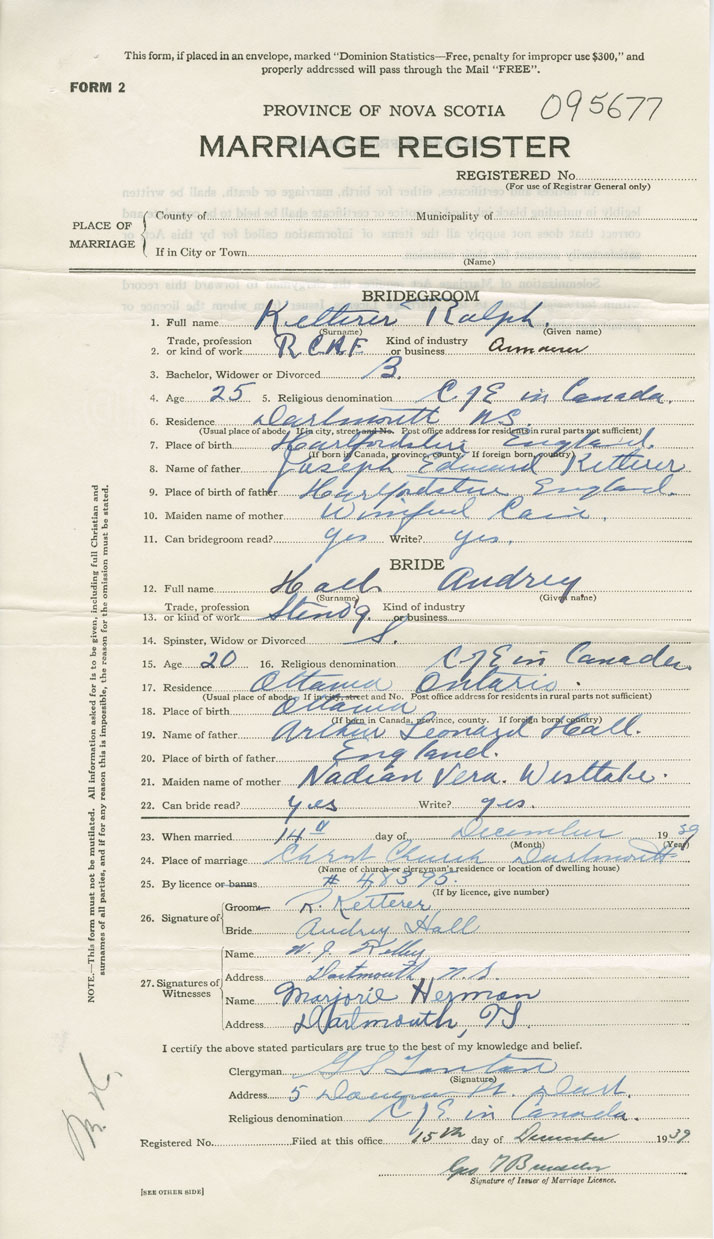 This form, if placed in an envelope, marked "Dominion Statistics—Free, penalty for improper use $300," and
properly addressed will pass through the Mail "FREE".
FORM 2
PROVINCE OF NOVA SCOTIA 095677
MARRIAGE REGISTER
REGISTERED No.
(For use of Registrar General only)
PLACE OF MARRIAGE
County of Municipality of
If in City or Town
(Name)
BRIDEGROOM
1. Full name Ketterer Ralph.
(Surname) (Given name)
2. Trade, profession or kind of work RCAF Kind of industry or business Armourer
3. Bachelor, Widower or Divorced B.
4. Age 25 5. Religious denomination C of E in Canada.
6. Residence Dartmouth N.S.
(Usual place of abode. If in city, street and No. Post office address for residents in rural parts not sufficient)
7. Place of birth Hartfordshire England.
(If born in Canada, province, county. If foreign born, country)
8. Name of father Joseph Edward Ketterer
9. Place of birth of father Hartfordshire England.
10. Maiden name of mother Winifred Cain.
11. Can bridegroom read? yes Write? yes.
BRIDE
12. Full name Hall Audrey
(Surname) (Given name)
13. Trade, profession or kind of work Stenog. Kind of industry or business
14. Spinster, Widow or Divorced S.
15. Age 20 16. Religious denomination C of E in Canada.
17. Residence Ottawa Ontario.
(Usual place of abode. If in city, street and No. Post office address for residents in rural parts not sufficient)
18. Place of birth Ottawa
(If born in Canada, province, county. If foreign born, country)
19. Name of father Arthur Leonard Hall.
20. Place of birth of father England.
21. Maiden name of mother Nadian Vera. Westlake.
22. Can bride read? yes Write? yes.
23. When married 14th day of December 1939
(Month) (Year)
24. Place of marriage Christ Church Dartmouth
(Name of church or clergyman's residence or location of dwelling house)
25. By licence or banns # 48395.
(If by licence, give number)
26. Signature of
Groom R. Ketterer
Bride Audrey Hall
27. Signatures of Witnesses
Name W. J. Kelley
Address Dartmouth, N.S.
Name Marjorie Herman
Address Dartmouth, NS.
I certify the above stated particulars are true to the best of my knowledge and belief.
Clergyman
(Signature)
Address 5 St. Dart.
Religious denomination C of E in Canada.
Registered No. Filed at this office 15th day of December 1939
Geo
Signature of Issuer of Marriage Licence.
[SEE OTHER SIDE]
NOTE.—This form must not be mutilated. All information asked for is to be given, including full Christian and
surnames of all parties, and if for any reason this is impossible, the reason for the omission must be stated.